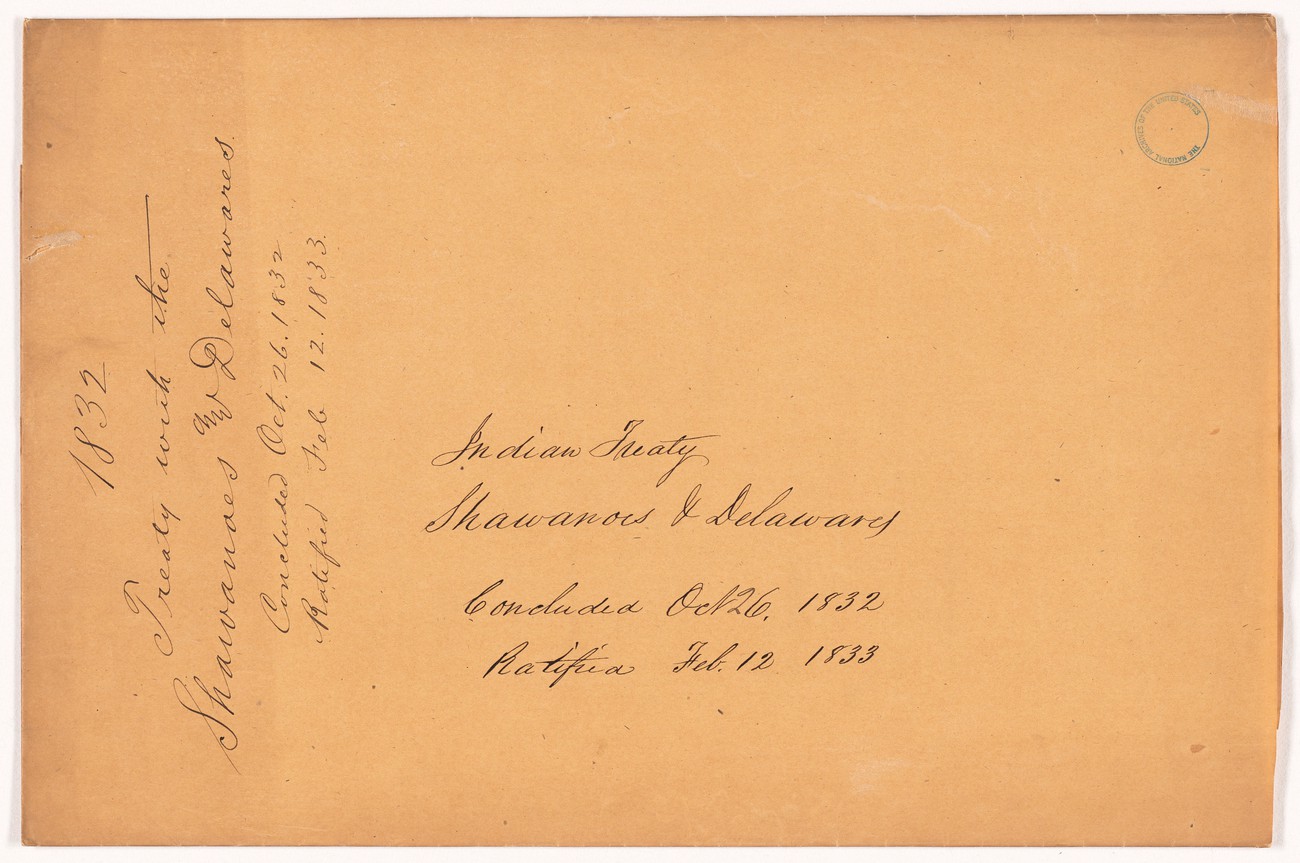 1832
Treaty with the
Shawanoes & Delawares.
Concluded Oct. 26. 1832
Ratified Feb 12. 1833.
Indian Treaty
Shawanoes & Delawares
Concluded Oct 26, 1832
Ratified Feb. 12 1833
THE NATIONAL ARCHIVES OF THE UNITED STATES